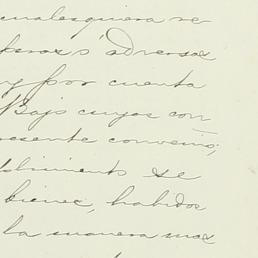 cualesquiera re
turas ó adversas
y por cuenta
Bajo cuyas con
resente convenio,
plimiento se
bienes, habidos
la manera mas